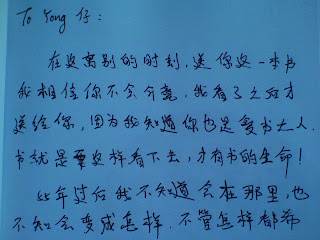 To Yong 仔:
在这离别的时刻,送你这一本书
我相信你不会介意,我看了之后才
送给你,因为我知道你也是爱书之人.
书就是要这样看下去,才有书的生命!
些年过后我不知道会在那里,也
不知会变成怎样.不管怎样都希